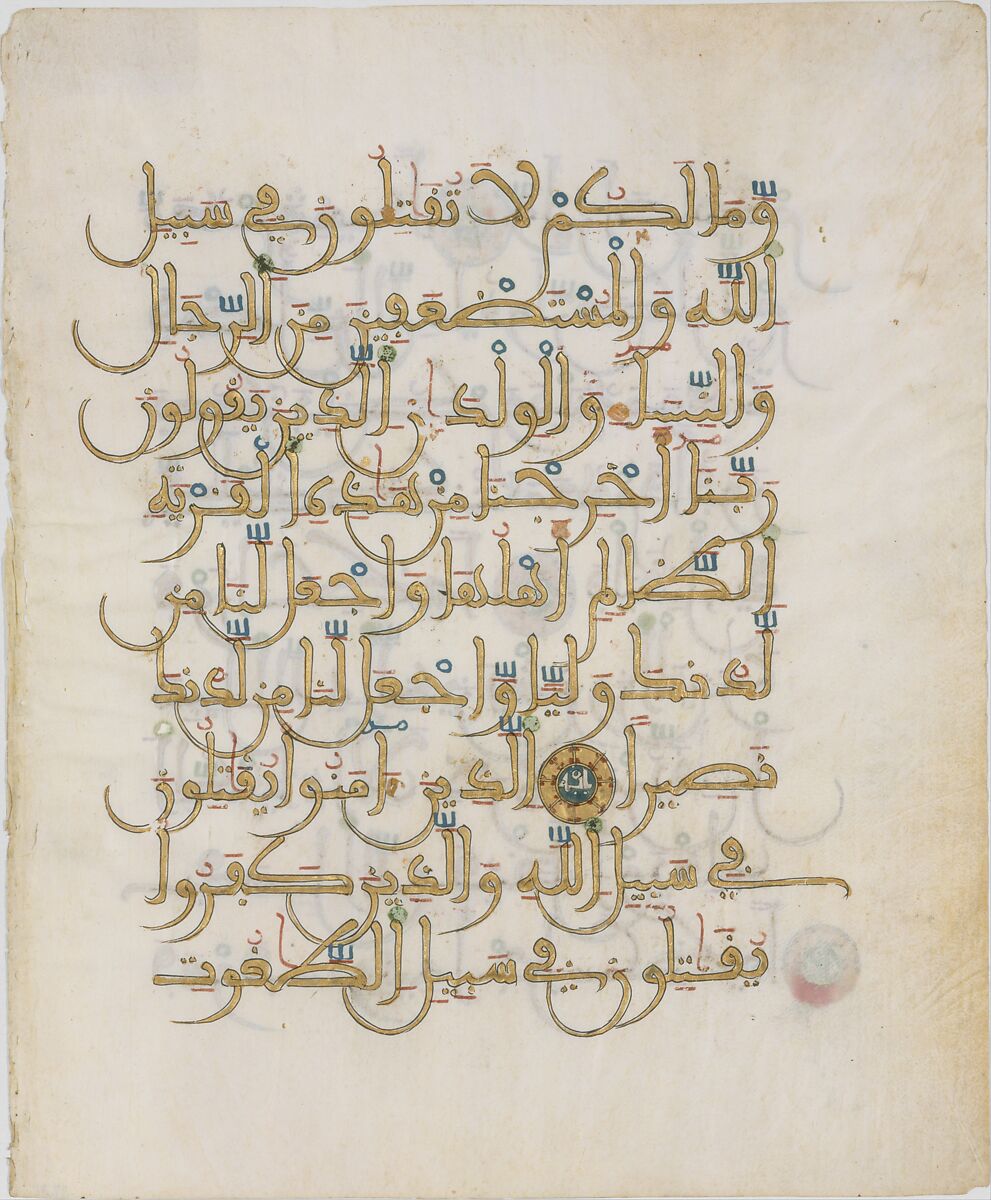 وَّمَا لَكُمْ لَا تُقَٰتِلُونَ فِي سَبِيلِ
اِ۬للَّهِ وَالْمُسْتَضْعَفِينَ مِنَ اَ۬لرِّجَالِ
وَالنِّسَآءِ وَالْوِلْدَٰنِ اِ۬لذِينَ يَقُولُونَ
رَبَّنَا أَخْرِجْنَا مِنْ هَٰذِهِ اِ۬لْقَرْيَةِ
اِ۬لظَّالِمِ أَهْلُهَا وَاجْعَل لَّنَا مِن
لَّدُنكَ وَلِيّاً وَّاجْعَل لَّنَا مِن لَّدُنكَ
نَصِيراً اَ۬لذِينَ ءَامَنُوا يُقَٰتِلُونَ
فِي سَبِيلِ اِ۬للَّهِ وَالذِينَ كَفَرُوا
يُقَٰتِلُونَ فِي سَبِيلِ اِ۬لطَّٰغُوتِ